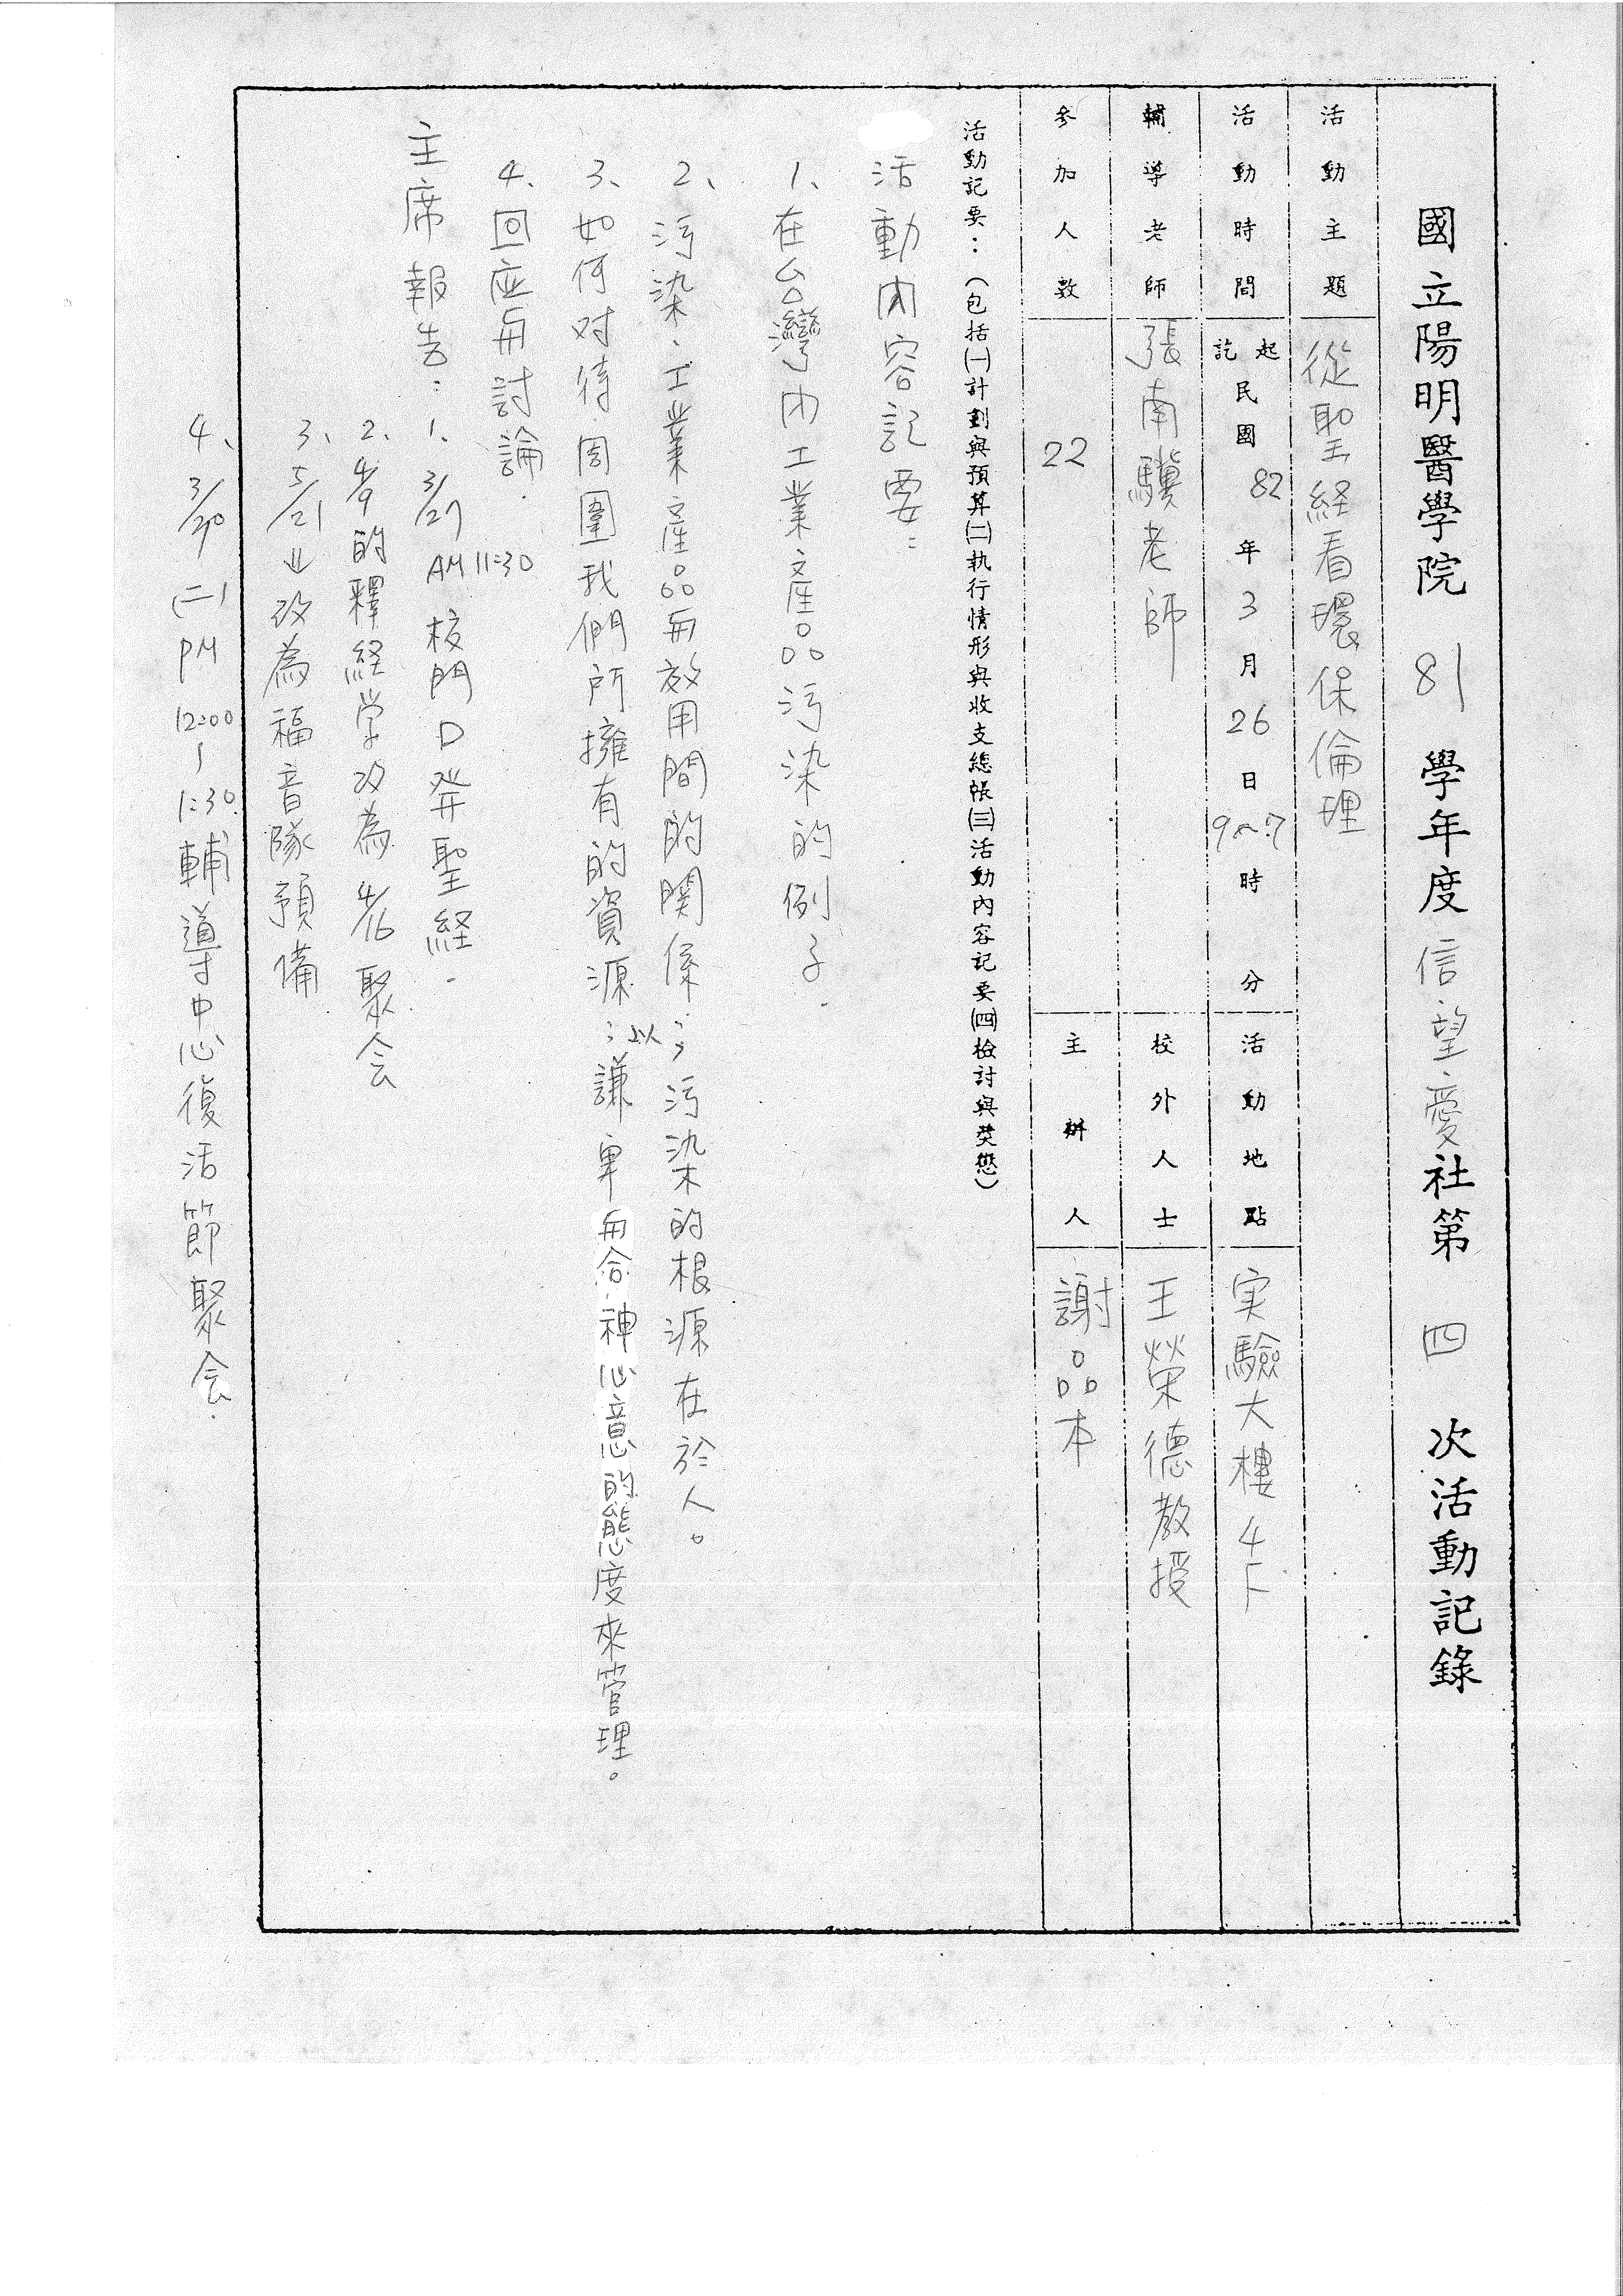 國立陽明醫學院 81 學年度信望愛社第 四 次活動記錄
活動主題 從聖経看環保倫理
活動時間 起訖 民國 82 年 3 月 26 日 時 分 活動地點 実驗大樓 4F
輔導老師 張南驥老師 校外人士 王榮德教授
參加人數 22 主辦人 謝品本
活動記要：（包括㈠計劃與預算㈡執行情形與收支總帳㈢活動內容記要㈣檢討與獎懲）
活動內容記要：
1、在台灣內工業產品污染的例子.
2、污染、工業產品与效用間的関係；污染的根源在於人。
3、如何对待周圍我們所擁有的資源；以謙卑与合神心意的態度來管理。
4、回应与討論.
主席報告：1、3/27 AM 11:30 校門口発聖経.
2、4/9的釋経学改為4/16聚会
3、5/21 改為福音隊預備
4、3/30 (二) PM 12:00~1:30 輔導中心復活節聚会.